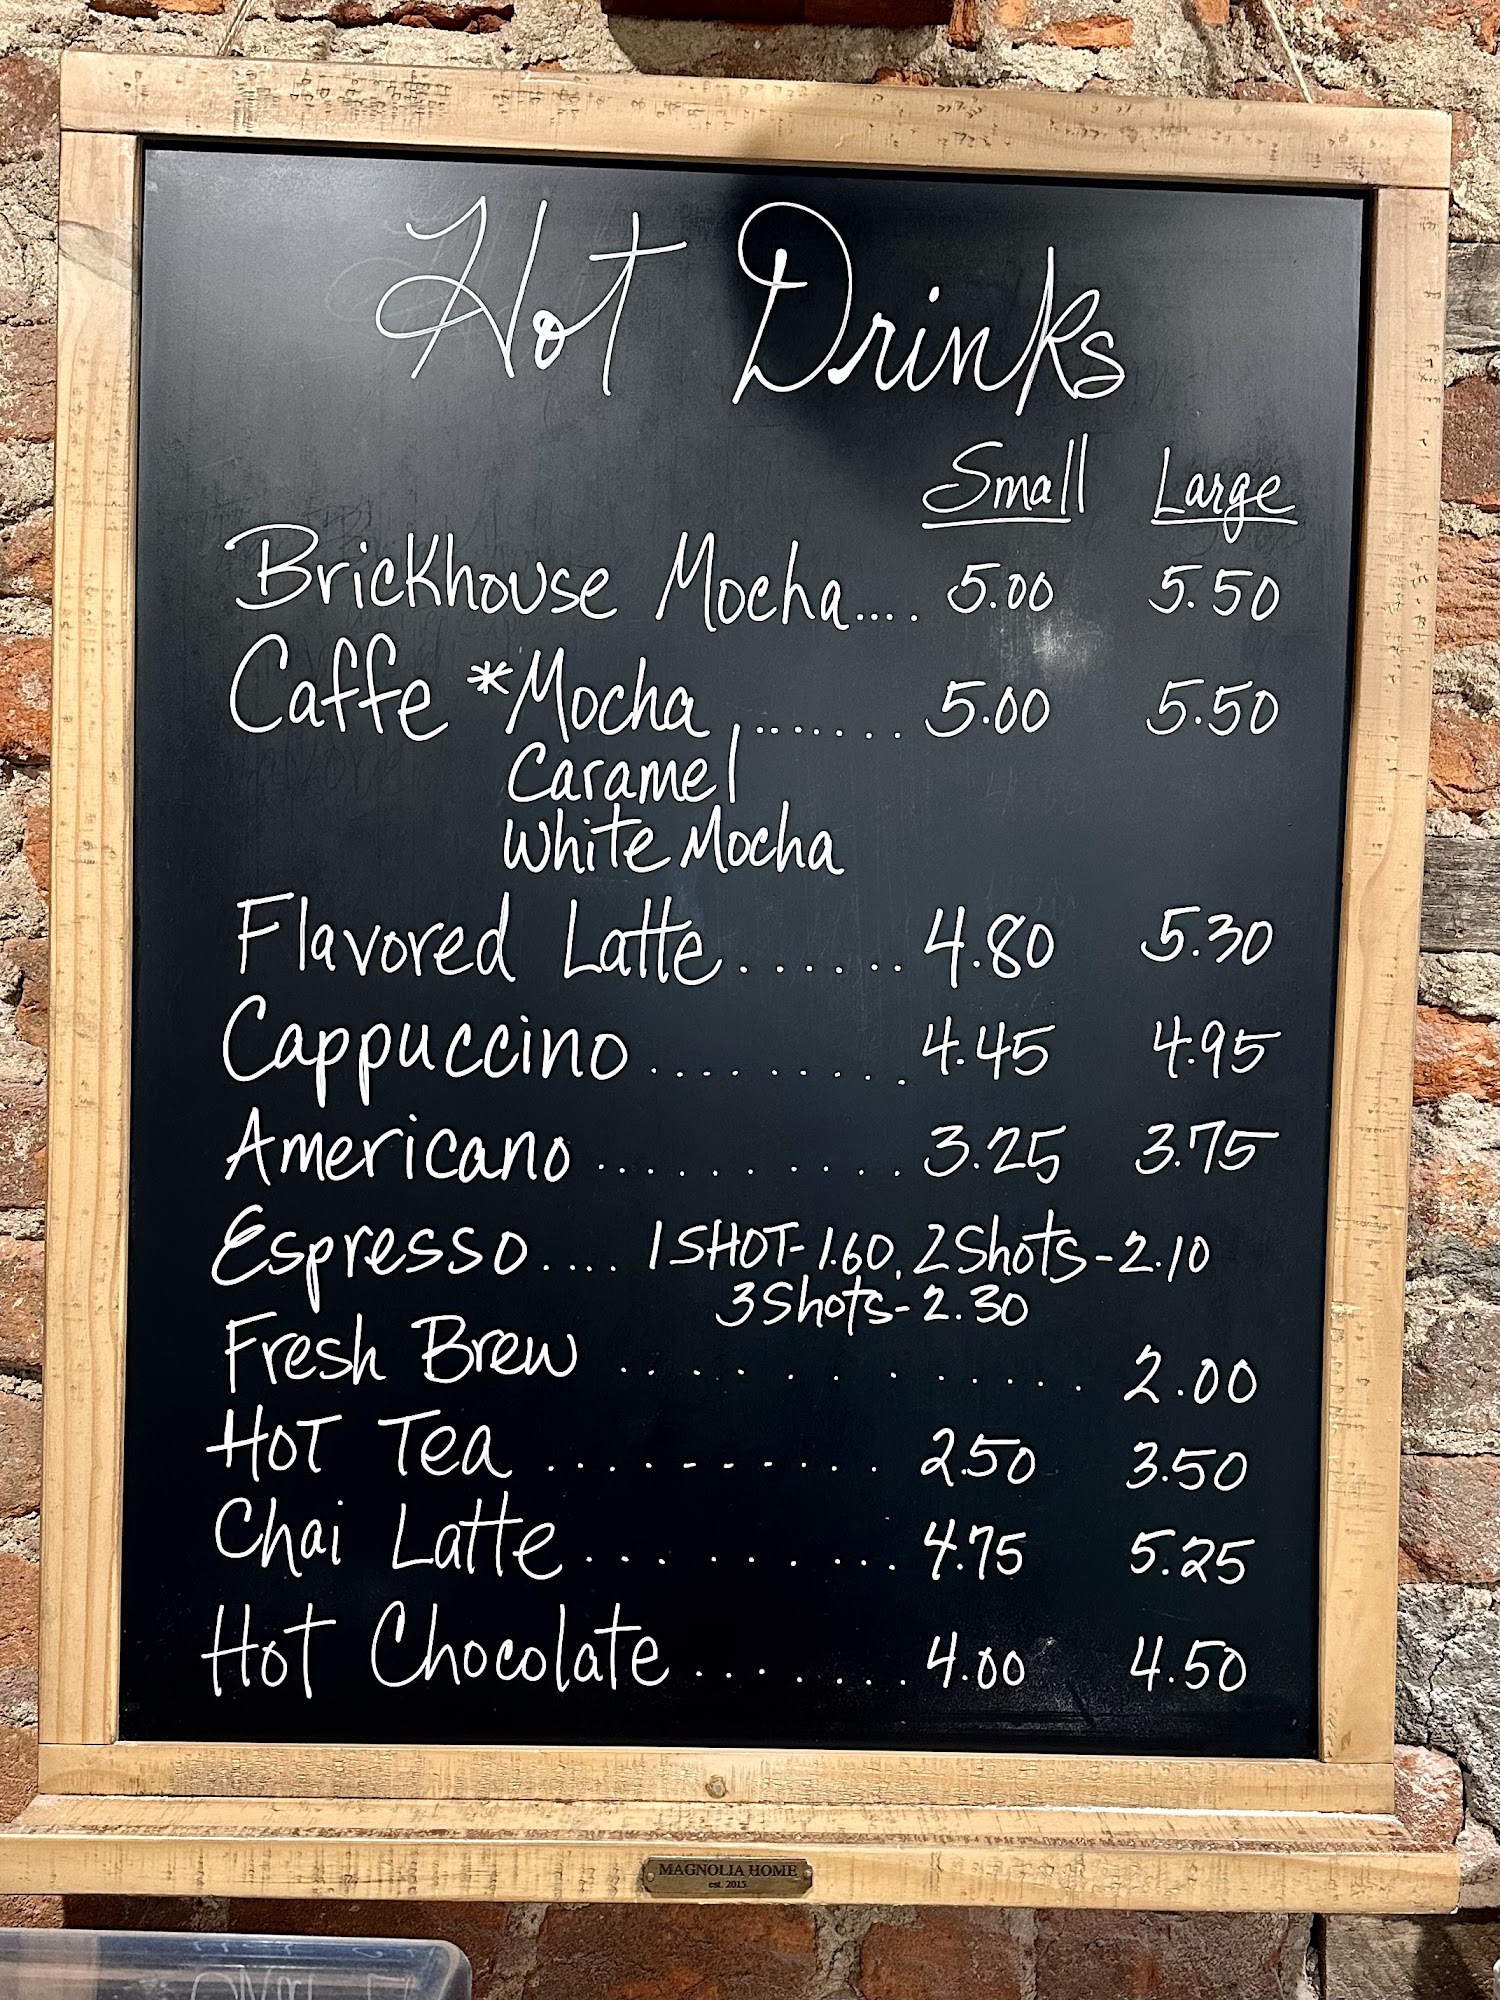 Hot Drinks
Small Large
Brickhouse Mocha.... 5.00 5.50
Caffe *Mocha ........ 5.00 5.50
Caramel
White Mocha
Flavored Latte...... 4.80 5.30
Cappuccino ......... 4.45 4.95
Americano ........... 3.25 3.75
Espresso.... 1 SHOT-1.60, 2 Shots-2.10
3 Shots-2.30
Fresh Brew ............ 2.00
Hot Tea ........... 2.50 3.50
Chai Latte.......... 4.75 5.25
Hot Chocolate ....... 4.00 4.50
MAGNOLIA HOME
est. 2015